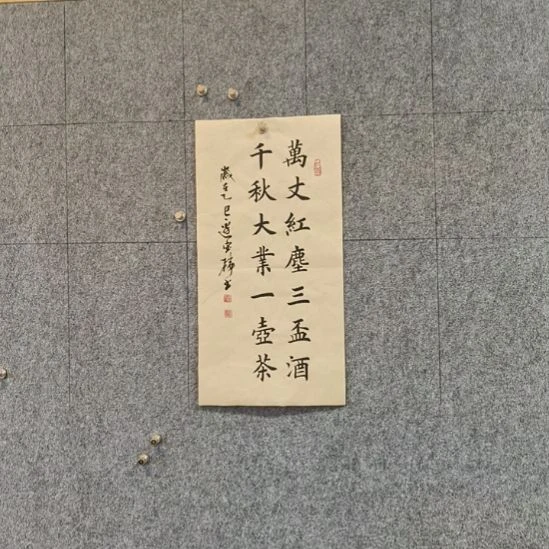 萬丈紅塵三盃酒
千秋大業一壺茶
歲在乙巳
書